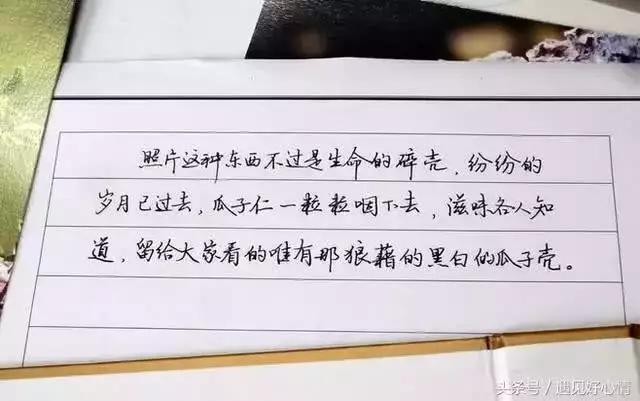 照片这种东西不过是生命的碎壳，纷纷的
岁月已过去，瓜子仁一粒粒咽下去，滋味各人知
道，留给大家看的唯有那狼藉的黑白的瓜子壳。
头条号/遇见好心情